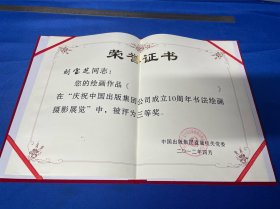 荣誉证书
刘宝莲同志：
您的绘画作品（　　　　）
在“庆祝中国出版集团公司成立10周年书法绘画
摄影展览”中，被评为三等奖。
中国出版集团直属机关党委
二〇一二年四月